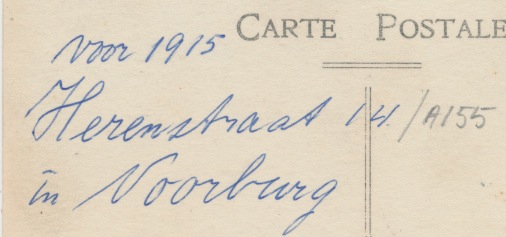 CARTE POSTALE
voor 1915
Herenstraat 14 /A155
in Voorburg